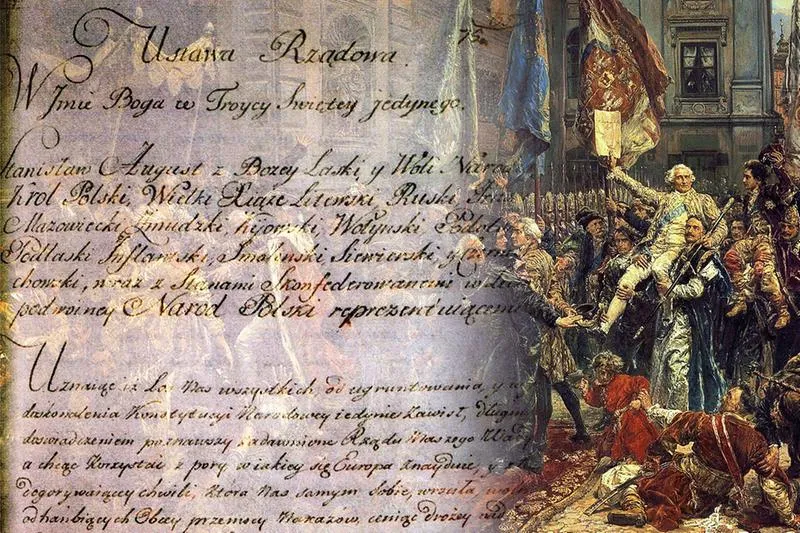 Ustawa Rządowa.
W Jmie Boga w Troycy Swiętey jedynego.
Stanisław August z Bożey Łaski, y Woli Narod
Krol Polski, Wielki Xiąże Litewski, Ruski,
Mazowiecki, Zmudzki, Kijowski, Wołynski, Podol
Podlaski, Inflantski, Smolenski, Siewierski, y Czernie
chowski, wraz z Stanami Skonfederowanemi w
podwoiney Narod Polski reprezentuiącemi
Uznaiąc iż Los Nas wszystkich, od ugruntowania, y
doskonalenia Konstytucyi Narodowey iedynie zawisł, długim
doswiadczeniem poznawszy zadawnione Rządu Naszego
a chcąc korzystać z pory w iakiey się Europa znayduie, y z
dogorywaiącey chwili, która Nas samym sobie, wrociła,
od hańbiących Obcey przemocy Nakazow, ceniąc drożey